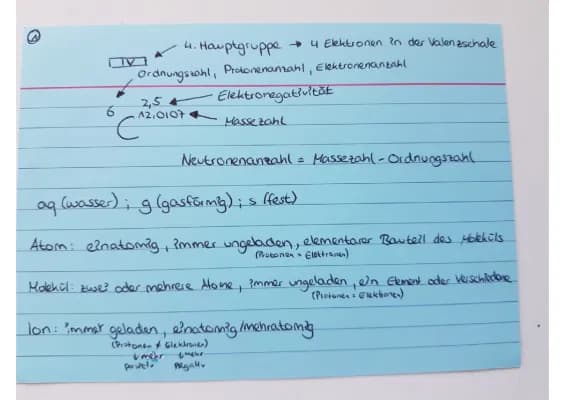 1
4. Hauptgruppe → 4 Elektronen in der Valenzschale
IV
Ordnungszahl, Protonenanzahl, Elektronenanzahl
2,5 ← Elektronegativität
6
C 12,0107 ← Massezahl
Neutronenanzahl = Massezahl - Ordnungszahl
aq (wasser) ; g (gasförmig) ; s (fest)
Atom: einatomig, immer ungeladen, elementarer Bauteil des Moleküls
(Protonen = Elektronen)
Molekül: zwei oder mehrere Atome, immer ungeladen, ein Element oder Verschiedene
(Protonen = Elektronen)
Ion: immer geladen, einatomig/mehratomig
(Protonen ≠ Elektronen)
↓ mehr ↓ mehr
positiv negativ